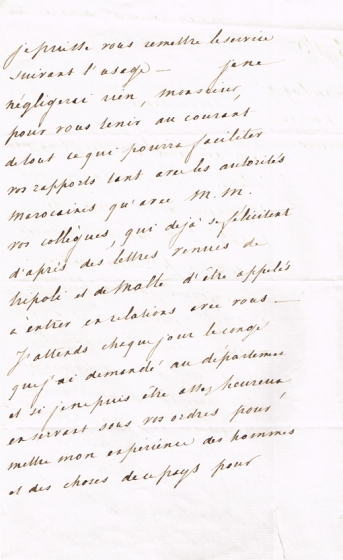 je puisse vous remettre le service
suivant l'usage — je ne
négligerai rien, monsieur,
pour vous tenir au courant
de tout ce qui pourra faciliter
vos rapports tant avec les autorités
marocaines qu'avec M. M.
vos collègues, qui dejà se félicitent
d'après des lettres venues de
tripoli et de Malte d'être appelés
a entrer en relations avec vous —
J'attends chaque jour le congé
que j'ai demandé au département
et si je ne puis être assez heureux
en servant sous vos ordres pour
mettre mon expérience des hommes
et des choses de ce pays pour